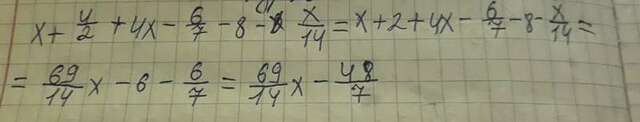 x + 4/2 + 4x - 6/7 - 8 - x/14 = x + 2 + 4x - 6/7 - 8 - x/14 =
= 69/14 x - 6 - 6/7 = 69/14 x - 48/7